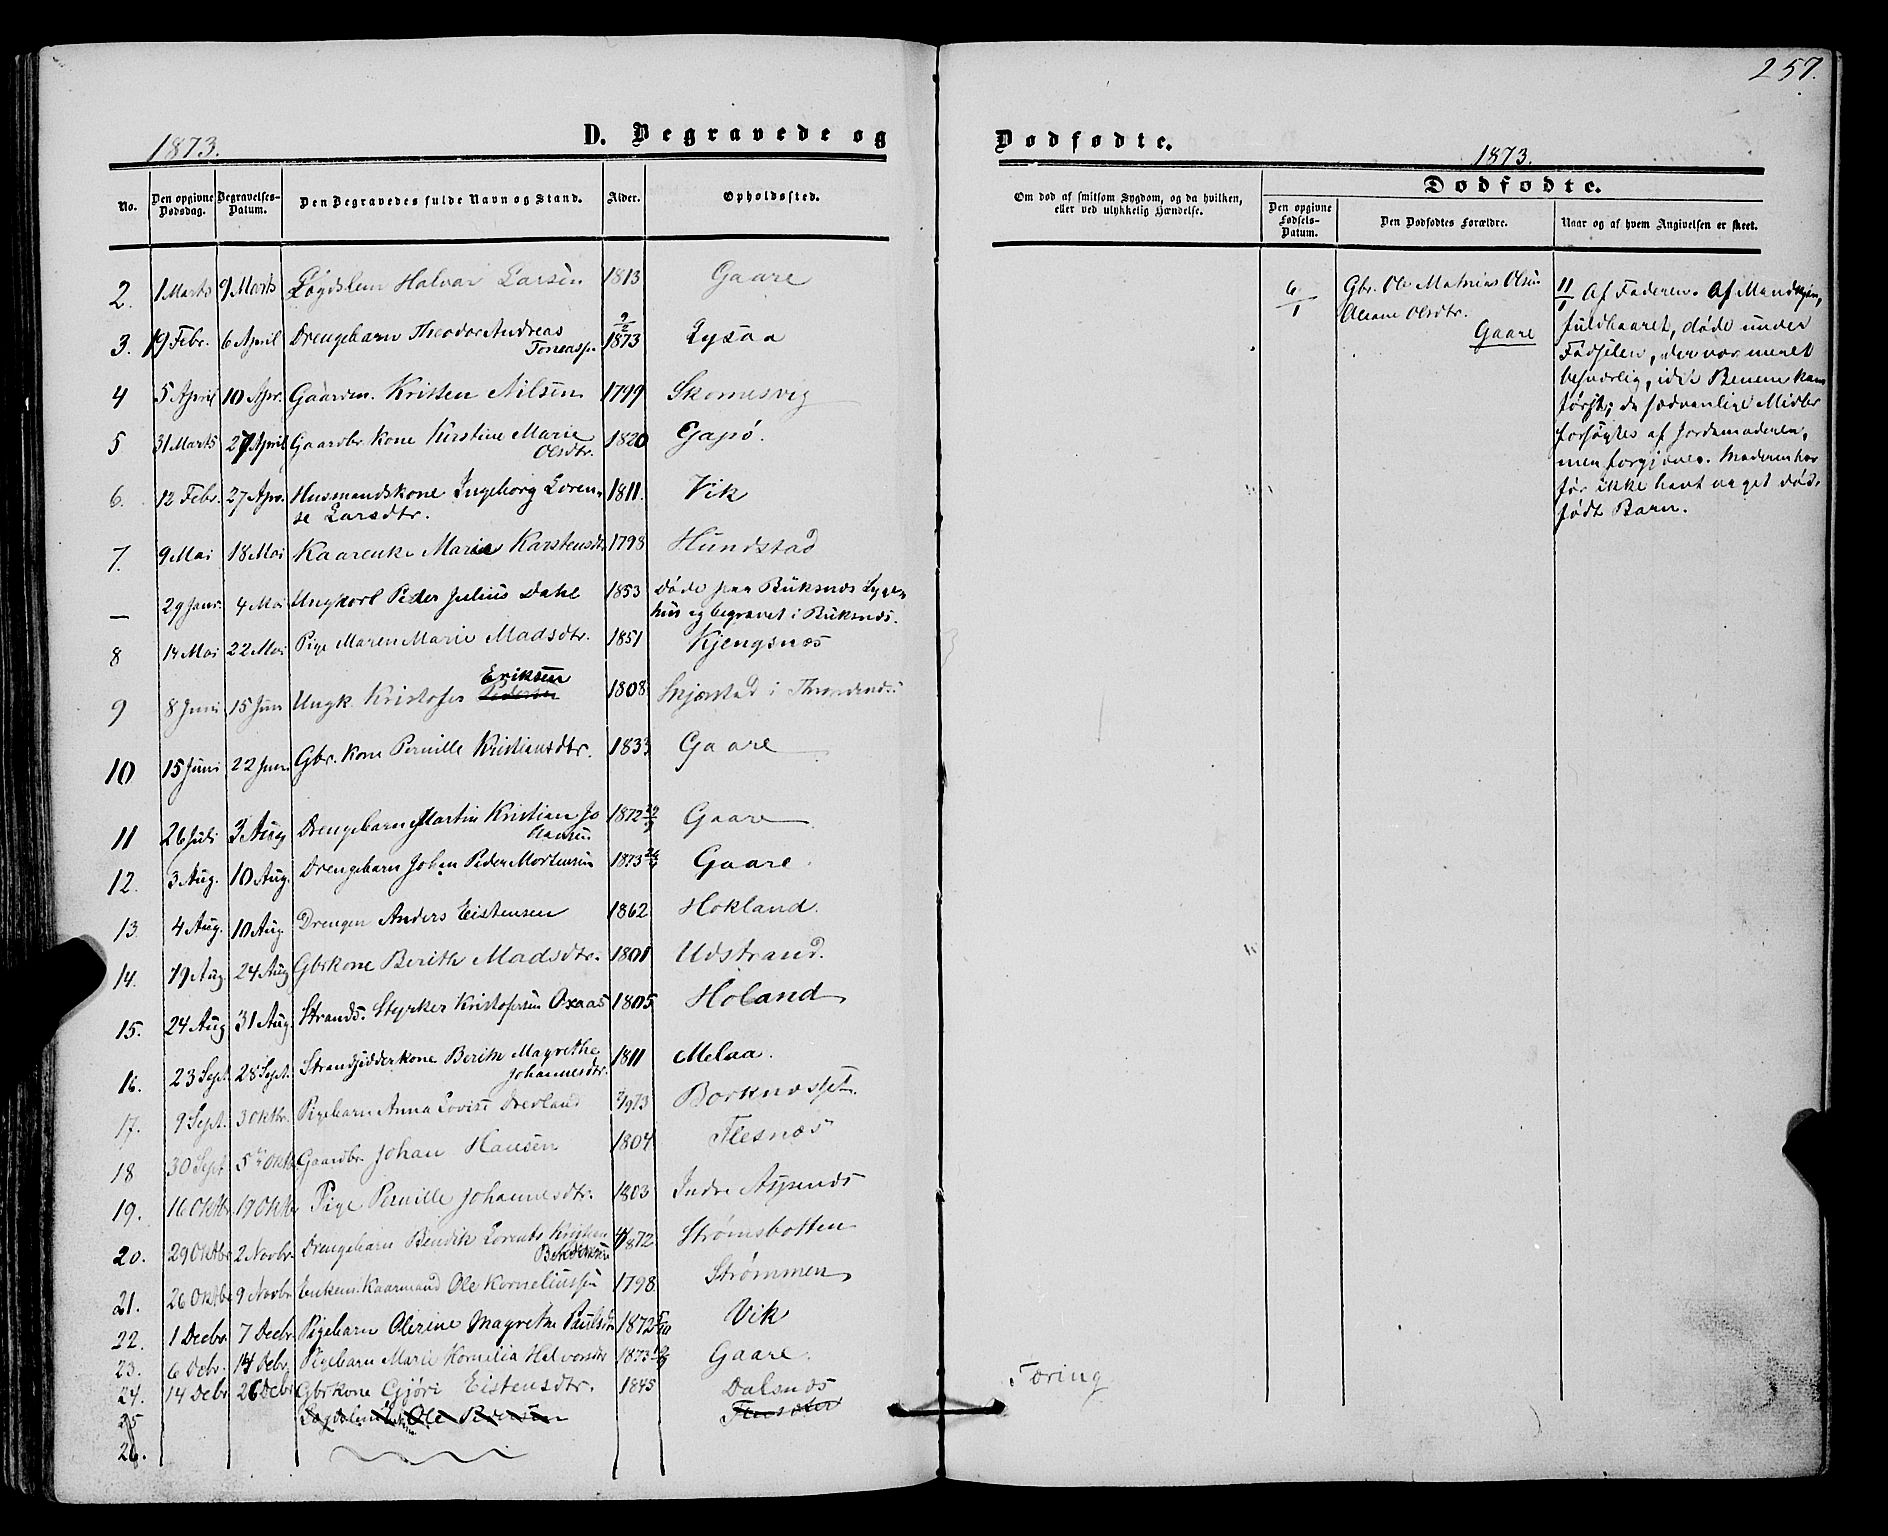 257.
1873. D. Begravede og
Dødfødte. 1873.
No. Den opgivne Dødsdag. Begravelses-Datum. Den Begravedes fulde Navn og Stand. Alder. Opholdssted.
Om død af smitsom Sygdom, og da hvilken, eller ved ulykkelig Hændelse. Dødfødte. Den opgivne Fødsels-Datum. Den Dødfødtes Forældre. Naar og af hvem Angivelsen er skeet.
2. 1 Marts 9 Marts Lægdslem Halvar Larsen 1813 Gaare
3. 19 Febr. 6 April Drengebarn Theodor Andreas 9/2 1873 Lysaa
4 5 April 10 Apr. Gaardm. Kristen Nilsen 1799 Skomesvig
5 31 Marts 27 April Gaardbr. Kone Kirstine Marie Olsdtr. 1820 Gapø.
6. 12 Febr. 27 Apr. Husmandskone Ingeborg Loren-
se Larsdtr. 1811. Vik
7. 9 Mai 18 Mai Kaarenke Marie Karstensdtr 1798 Hundstad
— 29 Janr. 4 Mai Ungkarl Peder Julius Dahl 1853 Døde paa Buksnæs Syge-
hus og begravet i Buksnæs.
8 14 Mai 22 Mai Pige Maren Marie Madsdtr. 1851 Kjengsnæs
9 8 Juni 15 Juni Ungk. Kristofer Eriksen 1808 i Throndenæs
10 15 Juni 22 Juni Gbr. Kone Pernille Kristiansdtr. 1833 Gaare
11 26 Juli 3 Aug Drengebarn Martin Kristian Jo
hansen 1872 Gaare
12. 3 Aug. 10 Aug. Drengebarn Johan Peder Mortensen 1873 Gaare
13. 4 Aug. 10 Aug Drengen Anders Eistensen 1862 Hokland.
14. 19 Aug. 24 Aug Gbrkone Berith Madsdtr. 1801 Udstrand.
15. 24 Aug 31 Aug. Strands. Styrker Kristofersen Oxaas 1805 Høland
16. 23 Sept. 28 Sept. Strandsidderkone Berith Magrethe
Johannesdtr. 1811 Melaa.
17. 9 Sept. 3 Oktbr. Pigebarn Anna Lovise 73 Borknæsset.
18 30 Sept 5 Oktb. Gaardbr. Johan Hansen 1804 Flesnæs
19. 16 Oktbr 19 Oktbr Pige Pernille Johannesdtr. 1803 Indre Aspenæs
20. 29 Oktbr 2 Novbr. Drengebarn Bendik Lorents Kristen
Bendiksen 1872 Strømsbotten
21. 26 Oktbr 9 Novbr Enkem. Kaarmand Ole Korneliussen 1798 Strømmen
22. 1 Decbr. 7 Decbr. Pigebarn Olerine Magrethe Paulsdtr 1872 5/10 Vik
23. 6 Debr. 14 Debr. Pigebarn Marie Kornelia Halvorsdtr 1873 Gaare.
24. 14 Debr 26 Debr Gbrkone Gjøri Eistensdtr. 1845 Dalsnæs Tæring
25 Ole Pedersen
26.
6/1 Gbr. Ole Mathias Olsen
Oleane Olsdtr.
Gaare
11/1 Af Faderen. Af Mandkjøn,
fuldbaaret, døde under
Fødselen, der var meget
besværlig, idet Benene kom
først; de sædvanlige Midler
forsøgtes af Jordemoderen,
men forgjæves. Moderen har
før ikke havt noget død-
født Barn.